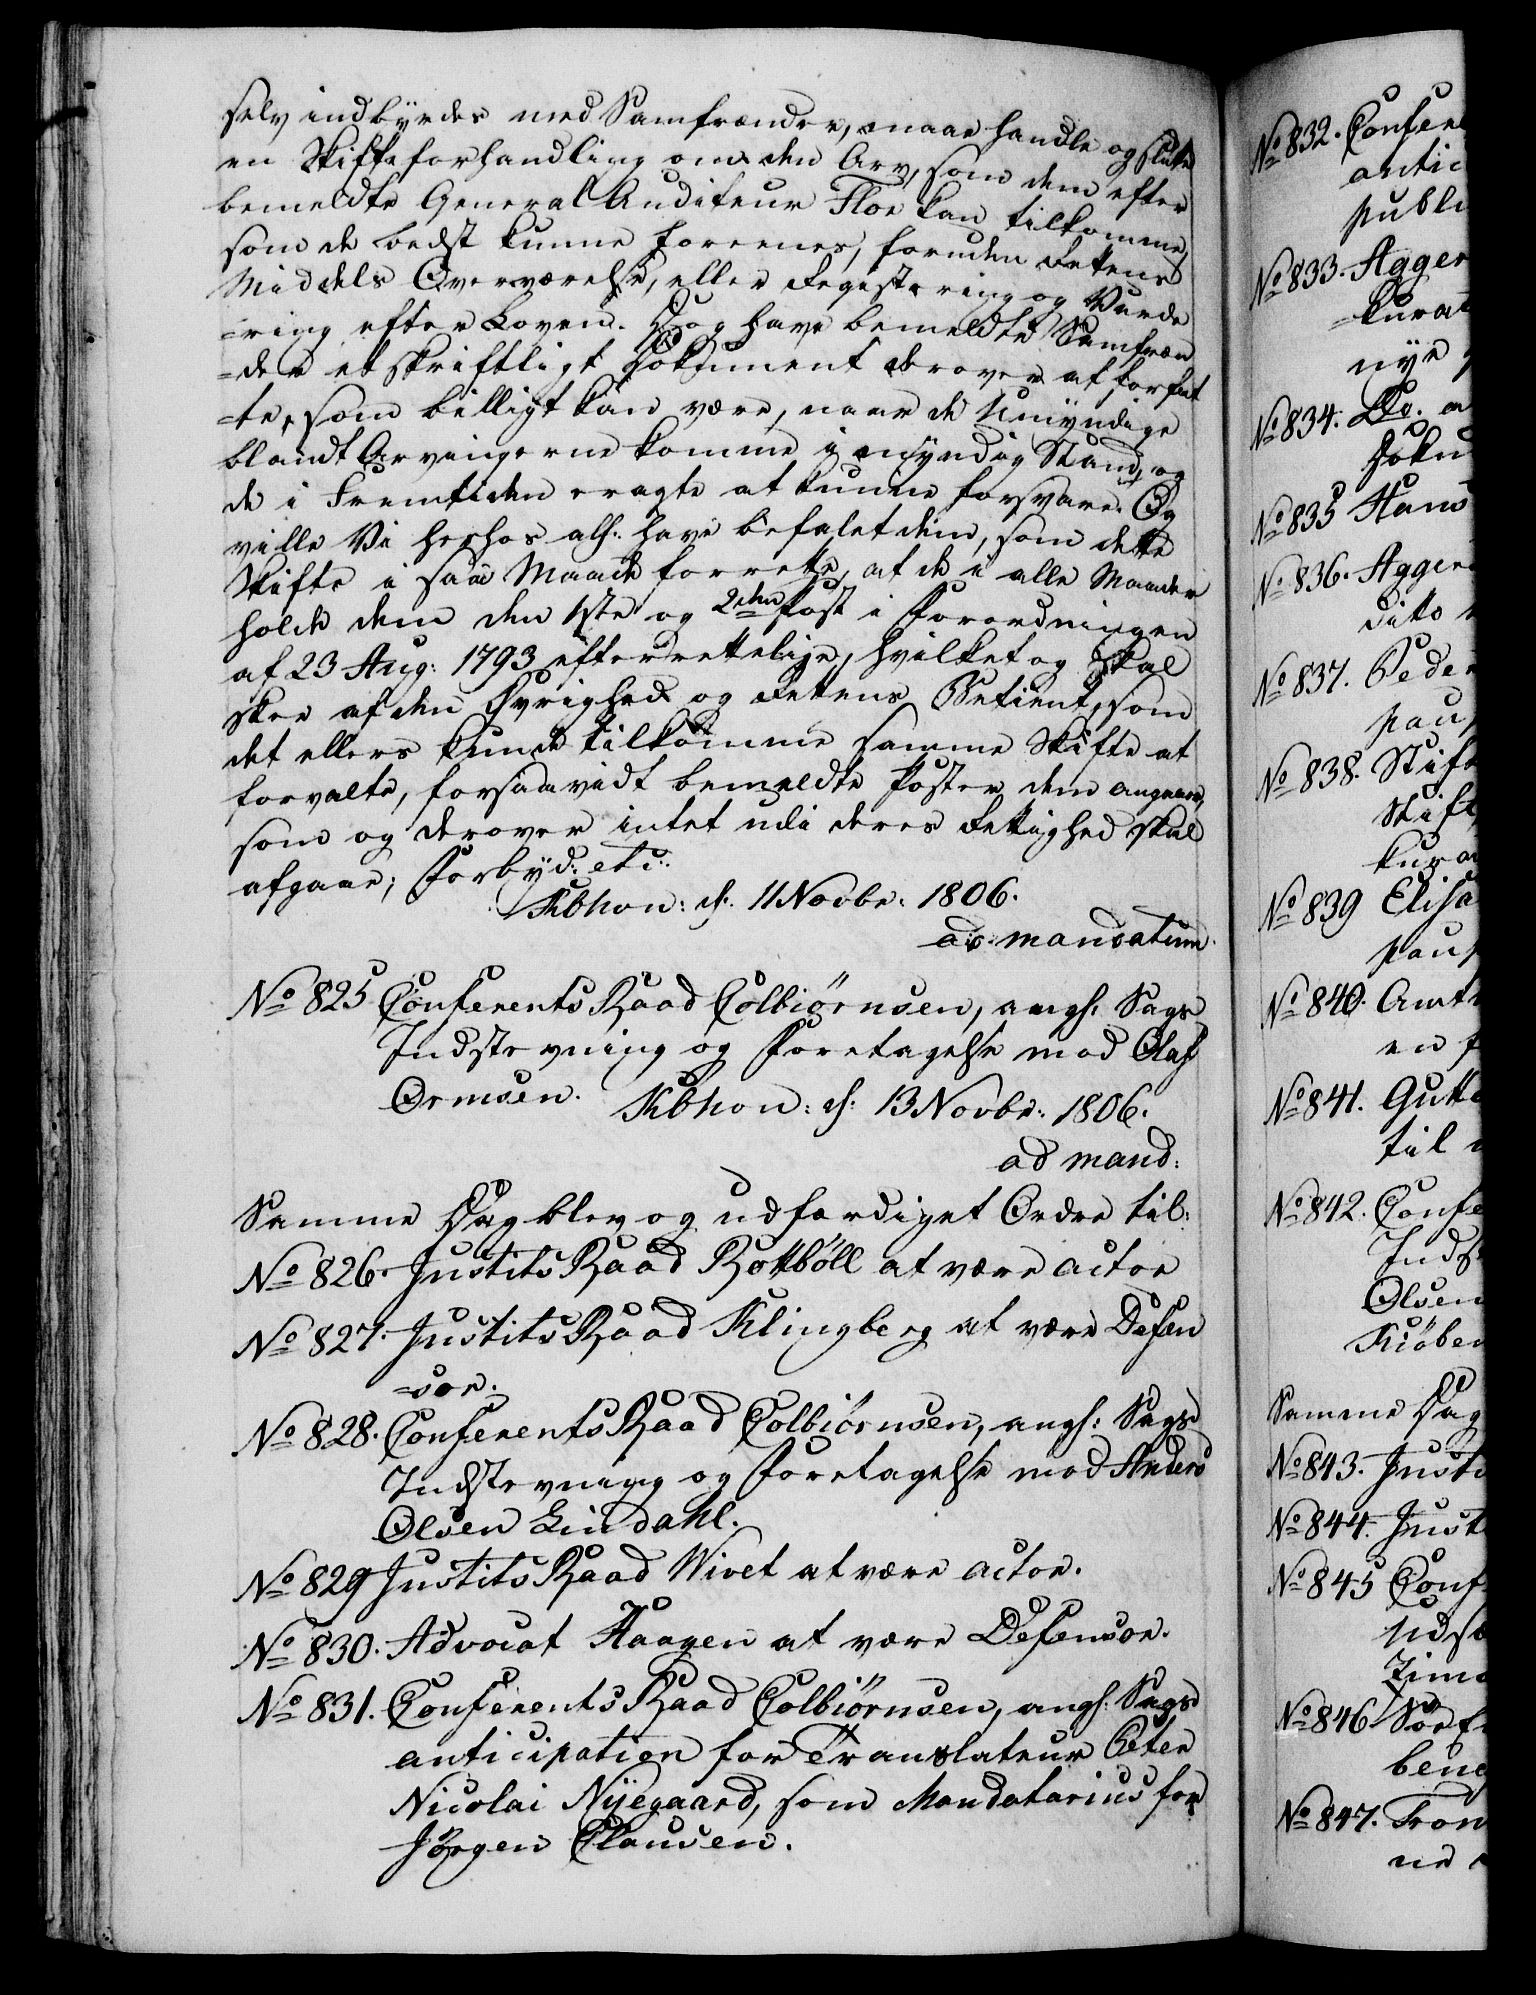 selv indbyrdes med Samfrænder, maae handle og slutte
en Skifteforhandling om den Arv, som dem efter
bemeldte General Auditeur Floe kan tilkomme,
som de bedst kunne foreenes, foruden Rettens
Middels Overværelse, eller Registering og Vurde
=ring efter Loven. Dog have bemeldte Samfræn
=der et skriftligt Dokument derover at forfat
=te, som billigt kan være, naar de Umyndige
blandt Arvingerne komme i myndig Stand, og
de i Fremtiden eragte at kunne forsvare. Og
ville Vi herhos alf: have befalet dem, som dette
Skifte i saa Maade forrette, at de i alle Maader
holde dem den 1ste og 2den Post i Forordningen
af 23 Aug: 1793 efterrettelige, hvilket og skal
skee af den Øvrighed og Rettens Betient, som
det ellers kunde tilkomme samme Skifte at
forvalte, forsaavidt bemeldte Poster dem angaaer,
som og derover intet udi deres Rettighed skal
afgaae; Forbyd: etc:
Kbhvn: d: 11 Novbr: 1806.
ad mandatum.
No 825 Conferents Raad Colbiørnsen, angl: Sags
Indstevning og Foretagelse mod Olaf
Ormsen. Kbhvn: d: 13 Novbr: 1806.
ad mand:
Samme Dag blev og udfærdiget Ordre til:
No 826. Justits Raad Rottbøll at være actor
No 827. Justits Raad Klingberg at være Defen
=sor.
No 828. Conferents Raad Colbiørnsen, angl: Sags
Indstevning og Foretagelse mod Anders
Olsen Lindahl.
No 829 Justits Raad Wivet at være actor.
No 830. Advocat Haagen at være Defensor.
No 831. Conferents Raad Colbiørnsen, angl: Sags
anticipation for Translateur Peter
Nicolai Nyegaard, som Mandatarius for
Jørgen Clausen.
No 832. Confere
antic
publi
No 833. Agger
=kurat
nye
No 834. Do. a
Doku
No 835 Hans
No 836. Agger
dito
No 837. Peder
pau
No 838. Stift
Skift
kura
No 839 Elisa
paup
No 840. Amt
en
No 841. Gutt
til
No 842. Confe
Indst
Olsen
Kiøben
Samme Dag
No 843. Justi
No 844. Just
No 845 Conf
Udst
Time
No 846
bene
No 847. Tron
ne